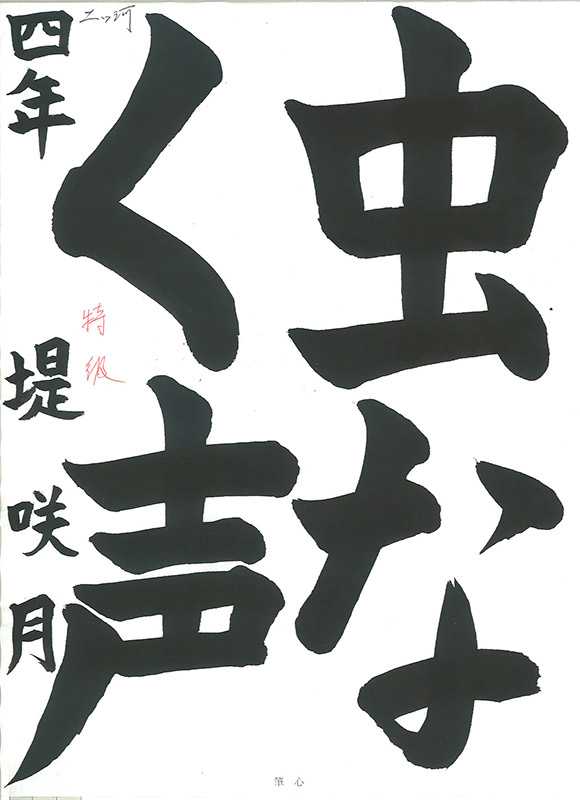 虫な
く声
四年 堤 咲月
特級
筆心